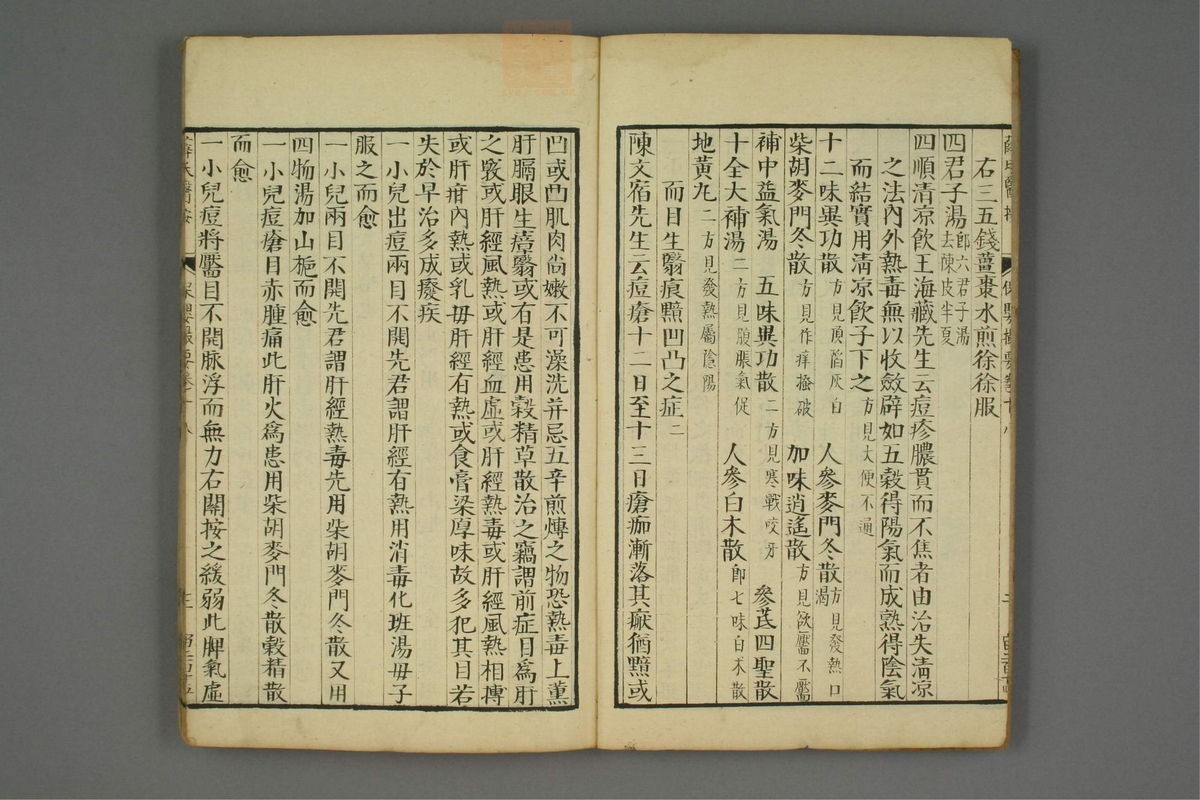 右三五錢薑棗水煎徐徐服
四君子湯即六君子湯去陳皮半夏
四順清涼飲王海藏先生云痘疹膿貫而不焦者由治失清涼
之法內外熱毒無以收斂辟如五穀得陽氣而成熟得陰氣
而結實用清涼飲子下之方見大便不通
十二味異功散方見頂陷灰白 人參麥門冬散方見發熱口渴
柴胡麥門冬散方見作痒搔破 加味逍遙散方見欲靨不靨
補中益氣湯 五味異功散二方見寒戰咬牙 參芪四聖散
十全大補湯二方見腹脹氣促 人參白朮散即七味白朮散
地黃丸二方見發熱屬陰陽
靣目生翳痕黯凹凸之症二
陳文宿先生云痘瘡十二日至十三日瘡痂漸落其瘢猶黯或
凹或凸肌肉尙嫩不可澡洗并忌五辛煎煿之物恐熱毒上薰
肝膈眼生瘴翳或有是患用穀精草散治之竊謂前症目爲肝
之竅或肝經風熱或肝經血虛或肝經熱毒或肝經風熱相摶
或肝疳內熱或乳母肝經有熱或食膏梁厚味故多犯其目若
失於早治多成癈疾
一小兒出痘兩目不開先君謂肝經有熱用消毒化班湯母子
服之而愈
一小兒兩目不開先君謂肝經熱毒先用柴胡麥門冬散又用
四物湯加山梔而愈
一小兒痘瘡目赤腫痛此肝火爲患用柴胡麥門冬散穀精散
而愈
一小兒痘將靨目不開脉浮而無力右關按之緩弱此脾氣虛